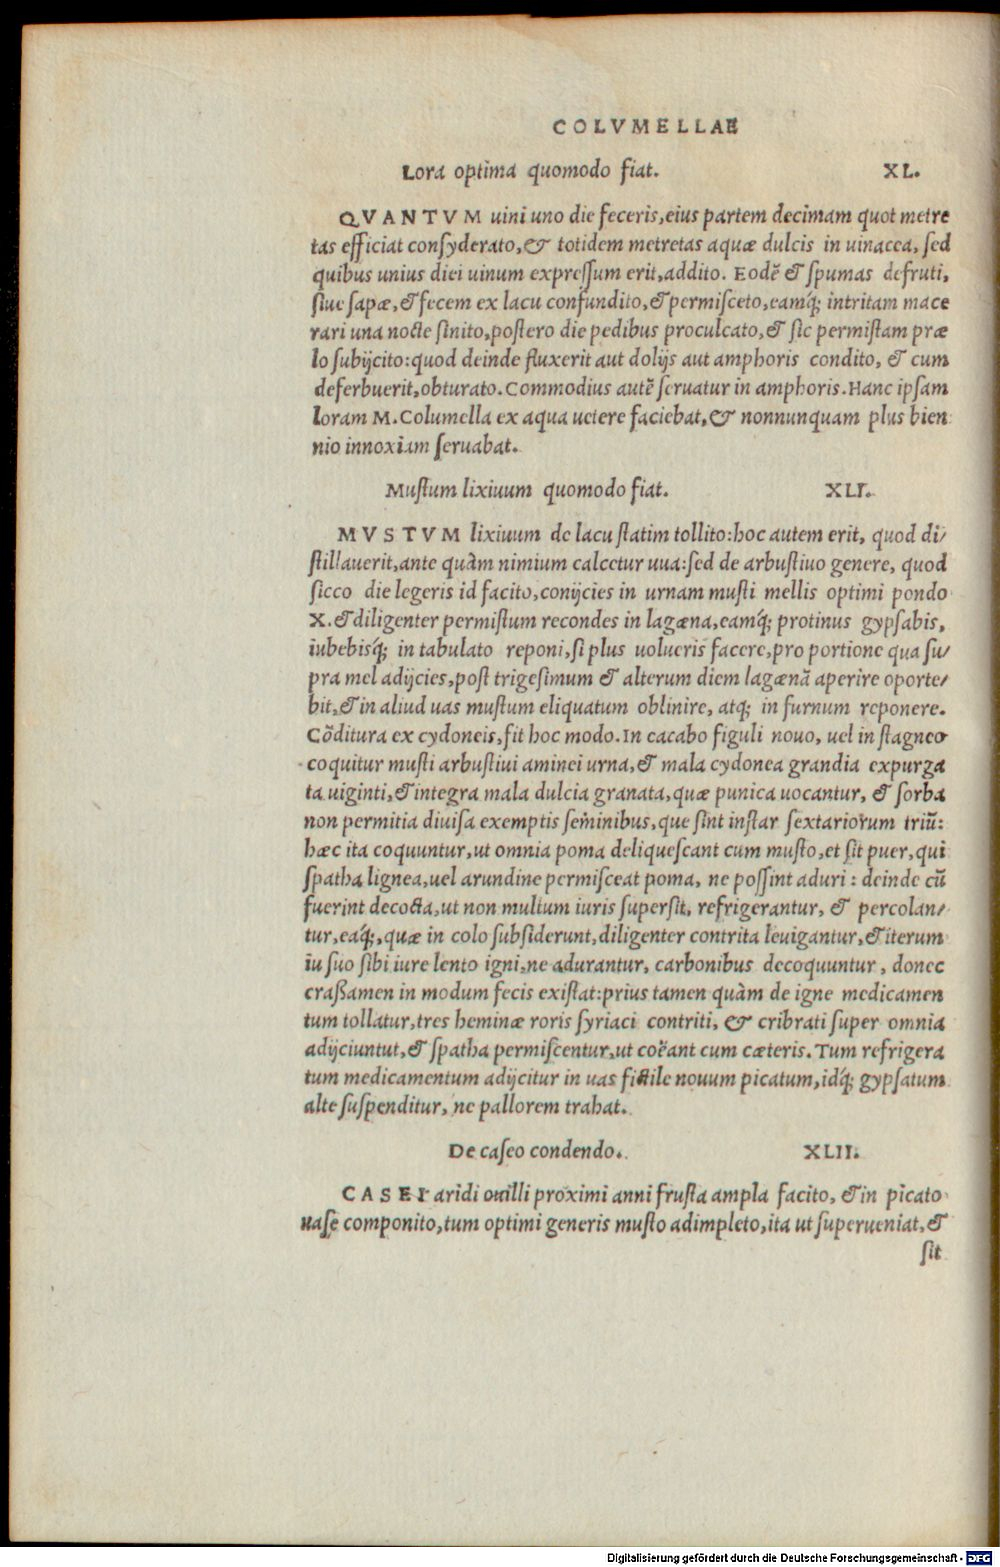 COLVMELLAE
Lora optima quomodo fiat. XL.
QVANTVM uini uno die feceris, eius partem decimam quot metre
tas efficiat consyderato, & totidem metretas aquæ dulcis in uinacea, sed
quibus unius diei uinum expressum erit, addito. Eodē & spumas defruti,
siue sapæ, & fecem ex lacu confundito, & permisceto, eamq́; intritam mace
rari una nocte sinito, postero die pedibus proculcato, & sic permistam præ
lo subijcito: quod deinde fluxerit aut dolijs aut amphoris condito, & cum
deferbuerit, obturato. Commodius autē seruatur in amphoris. Hanc ipsam
loram M. Columella ex aqua uetere faciebat, & nonnunquam plus bien
nio innoxiam seruabat.
Mustum lixiuum quomodo fiat. XLI.
MVSTVM lixiuum de lacu statim tollito: hoc autem erit, quod di/
stillauerit, ante quàm nimium calcetur uua: sed de arbustiuo genere, quod
sicco die legeris id facito, conijcies in urnam musti mellis optimi pondo
X. & diligenter permistum recondes in lagæna, eamq́; protinus gypsabis,
iubebisq́; in tabulato reponi, si plus uolueris facere, pro portione qua su/
pra mel adijcies, post trigesimum & alterum diem lagænā aperire oporte/
bit, & in aliud uas mustum eliquatum oblinire, atq; in furnum reponere.
Cōditura ex cydoneis, fit hoc modo. In cacabo figuli nouo, uel in stagneo
coquitur musti arbustiui aminei urna, & mala cydonea grandia expurga
ta uiginti, & integra mala dulcia granata, quæ punica uocantur, & sorba
non permitia diuisa exemptis seminibus, que sint instar sextariorum triū:
hæc ita coquuntur, ut omnia poma deliquescant cum musto, et sit puer, qui
spatha lignea, uel arundine permisceat poma, ne possint aduri: deinde cū
fuerint decocta, ut non multum iuris supersit, refrigerantur, & percolan/
tur, eaq́;, quæ in colo subsiderunt, diligenter contrita leuigantur, & iterum
iu suo sibi iure lento igni, ne adurantur, carbonibus decoquuntur, donec
craßamen in modum fecis existat: prius tamen quàm de igne medicamen
tum tollatur, tres heminæ roris syriaci contriti, & cribrati super omnia
adijciuntut, & spatha permiscentur, ut coëant cum cæteris. Tum refrigera
tum medicamentum adijcitur in uas fictile nouum picatum, idq́; gypsatum
alte suspenditur, ne pallorem trahat.
De caseo condendo. XLII.
CASEI aridi ouilli proximi anni frusta ampla facito, & in picato
uase componito, tum optimi generis musto adimpleto, ita ut superueniat, &
sit
Digitalisierung gefördert durch die Deutsche Forschungsgemeinschaft - DFG